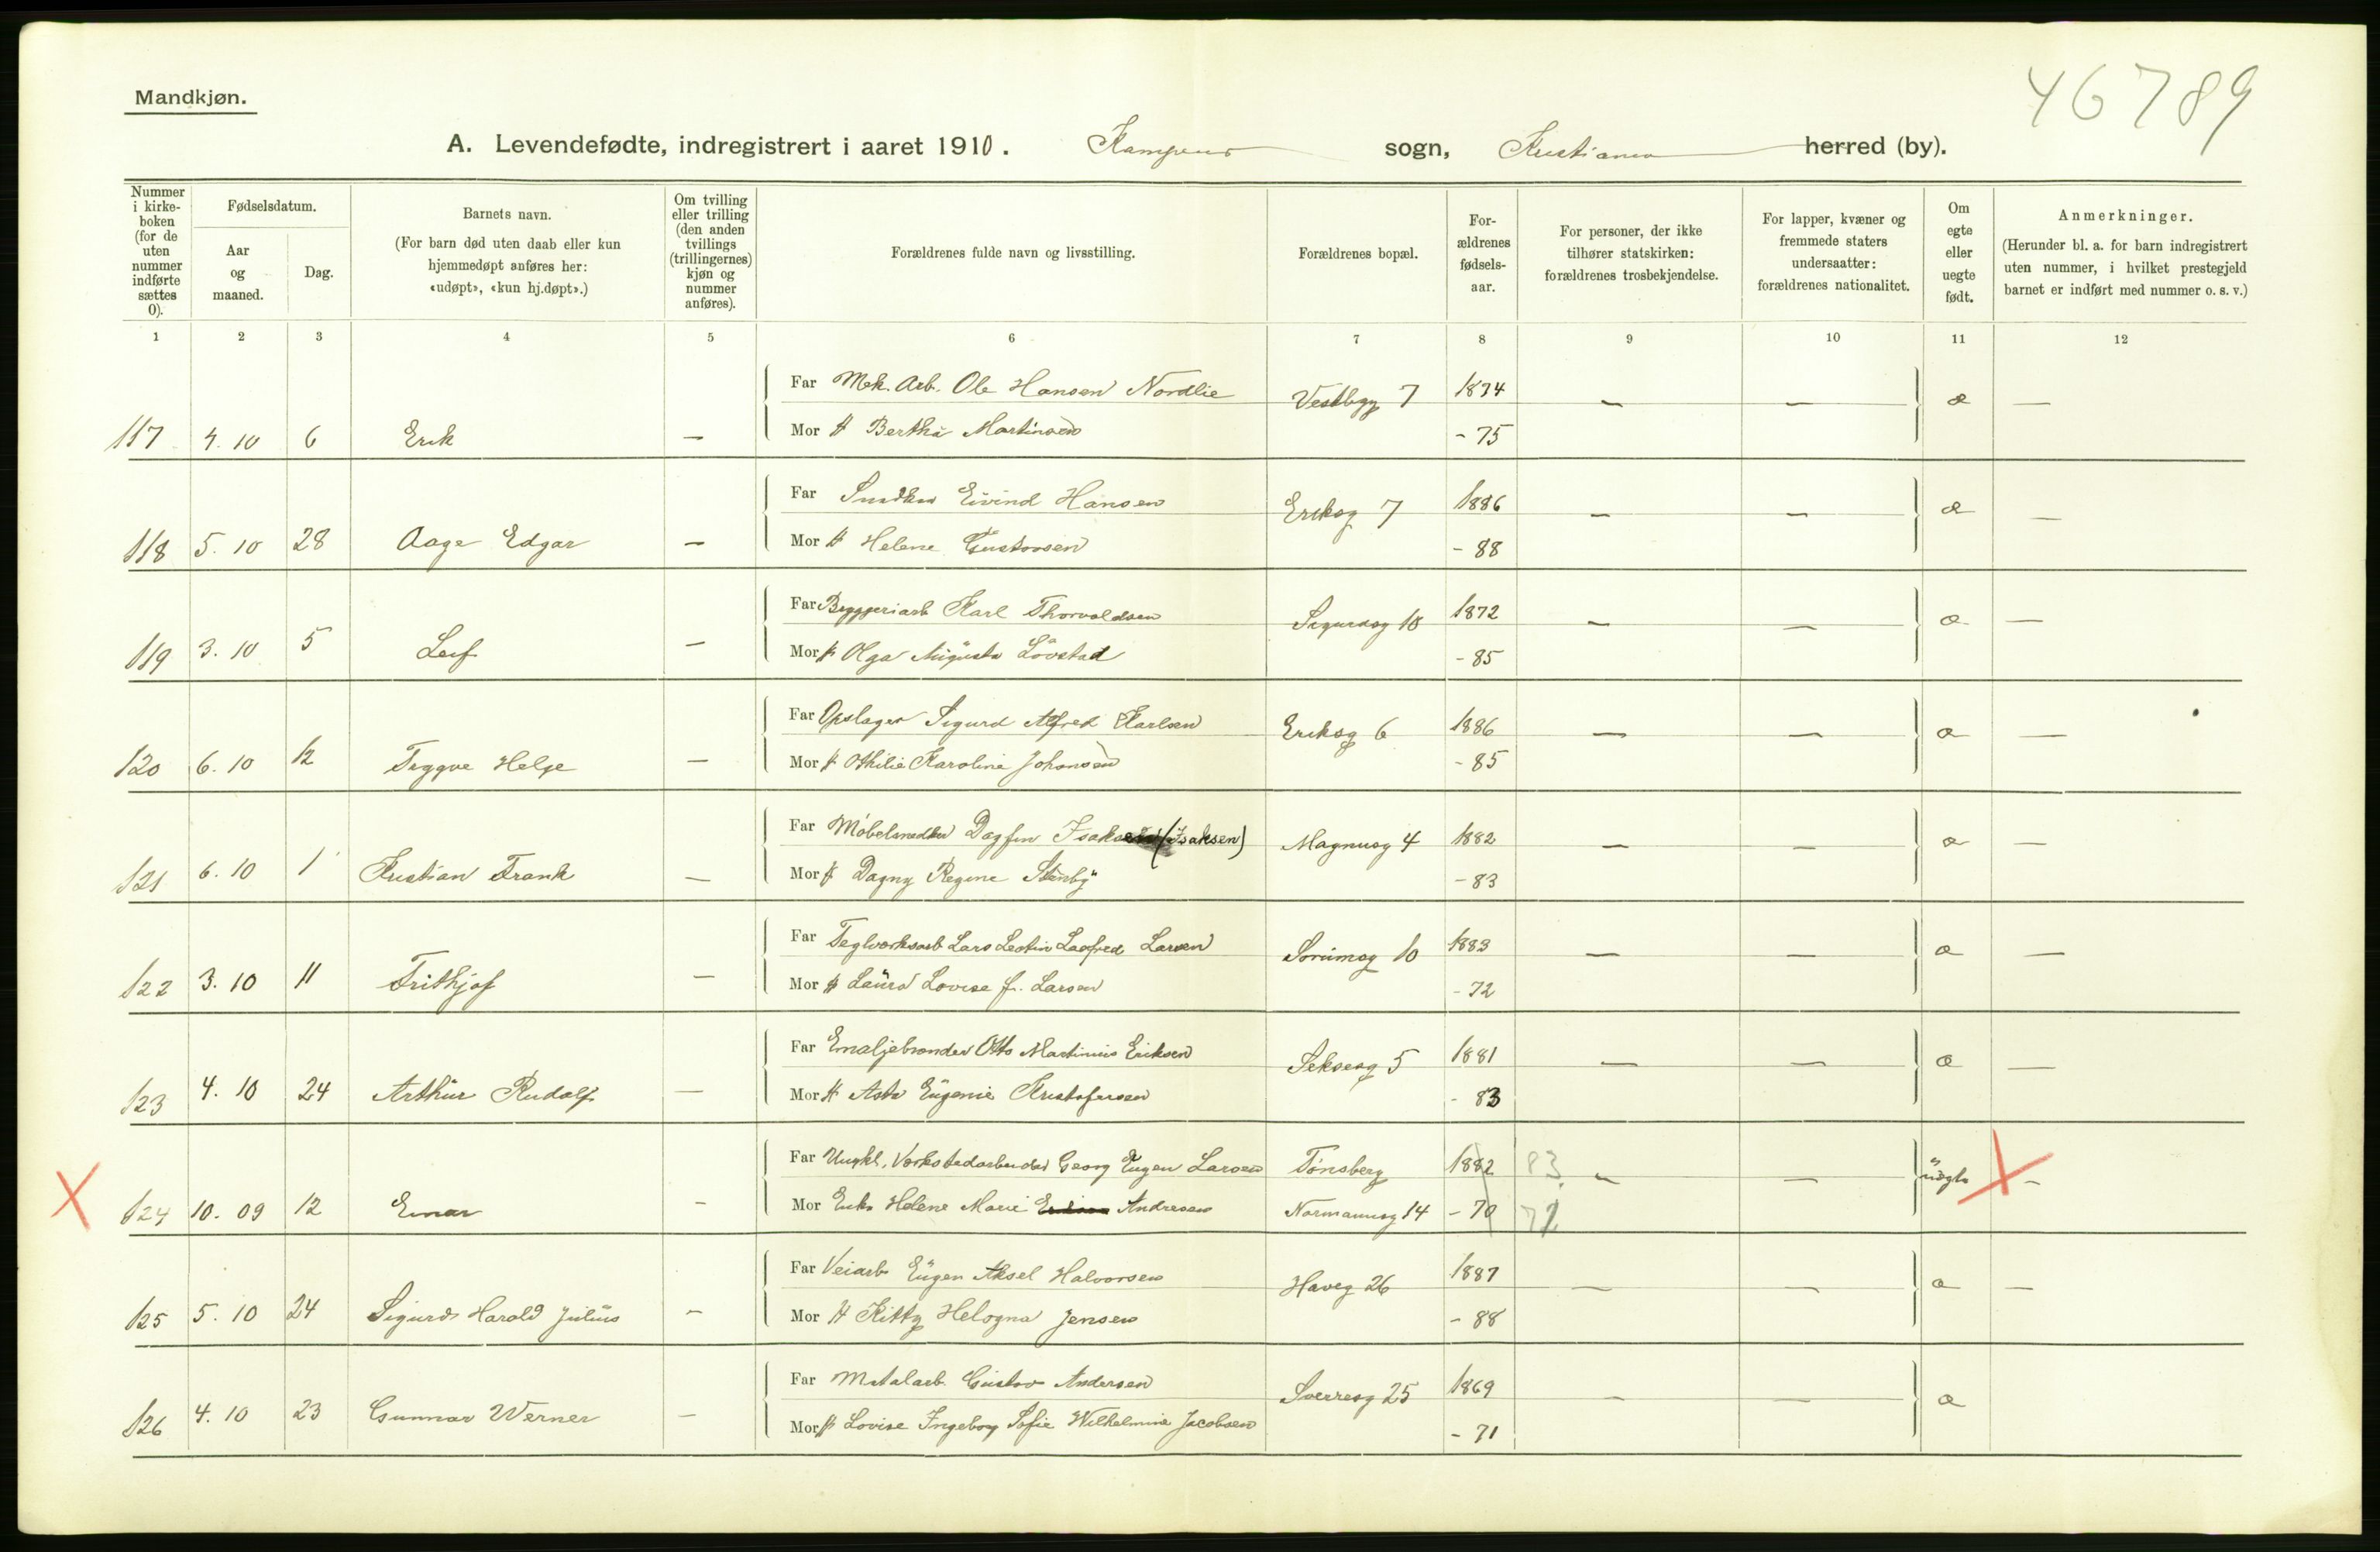 46789
Mandkjøn.
A. Levendefødte, indregistrert i aaret 1910. Kampens sogn, Kristiania herred (by).
Nummer i kirkeboken (for de uten nummer indførte sættes 0).
Fødselsdatum.
Aar og maaned.
Dag.
Barnets navn.
(For barn død uten daab eller kun hjemmedøpt anføres her: «udøpt», «kun hj.døpt».)
Om tvilling eller trilling (den anden tvillings (trillingernes) kjøn og nummer anføres).
Forældrenes fulde navn og livsstilling.
Forældrenes bopæl.
Forældrenes fødselsaar.
For personer, der ikke tilhører statskirken: forældrenes trosbekjendelse.
For lapper, kvæner og fremmede staters undersaatter: forældrenes nationalitet.
Om egte eller uegte født.
Anmerkninger.
(Herunder bl. a. for barn indregistrert uten nummer, i hvilket prestegjeld barnet er indført med nummer o. s. v.)
1 2 3 4 5 6 7 8 9 10 11 12
Far Mek. Arb. Ole Hansen Nordlie Vestbyg 7 1874 — — æ —
117 4. 10 6 Erik — Mor H Bertha Martinsen - 75
Far Snedker Eivind Hansen Eriksg 7 1886 — — æ —
118 5. 10 28 Aage Edgar — Mor H Helene Gustavsen - 88
Far Bryggeriarb Karl Thorvaldsen Sigurdsg 10 1872 — — æ —
119 3. 10 5 Leif — Mor H Olga Augusta Lövstad - 85
Far Opslager Sigurd Alfred Karlsen Eriksg 6 1886 — — æ —
120 6. 10 12 Trygve Helge — Mor H Othilie Karoline Johansen - 85
Far Möbelsnedker Dagfin (Isaksen) Magnusg 4 1882 — — æ —
121 6. 10 1 Kristian Frank — Mor H Dagny Regine Stenby - 83
Far Teglverksarb Lars Larsen Sörumsg 10 1883 — — æ —
122 3. 10 11 Frithjof — Mor H Laura Lovise f. Larsen - 72
Far Emaljebrænder Otto Martinius Eriksen Seksesg 5 1881 — — æ —
123 4. 10 24 Arthur Rudolf — Mor H Asta Eugenie Kristofersen - 83
Far Ungkl. Verkstedarbeider Georg Eugen Larsen Tönsberg 1882 83 — — uegte —
124 10. 09 12 Einar — Mor Enke Helene Marie Andresen Normannsg 14 - 70 72
Far Veiarb Eugen Aksel Halvorsen Haveg 26 1887 — — æ —
125 5. 10 24 Sigurd Harald Julius — Mor H Kitty Helogna Jensen - 88
Far Metalarb. Gustav Andersen Sverresg 25 1869 — — æ
126 4. 10 23 Gunnar Werner — Mor H Lovise Ingeborg Sofie Wilhelmine Jacobsen - 71